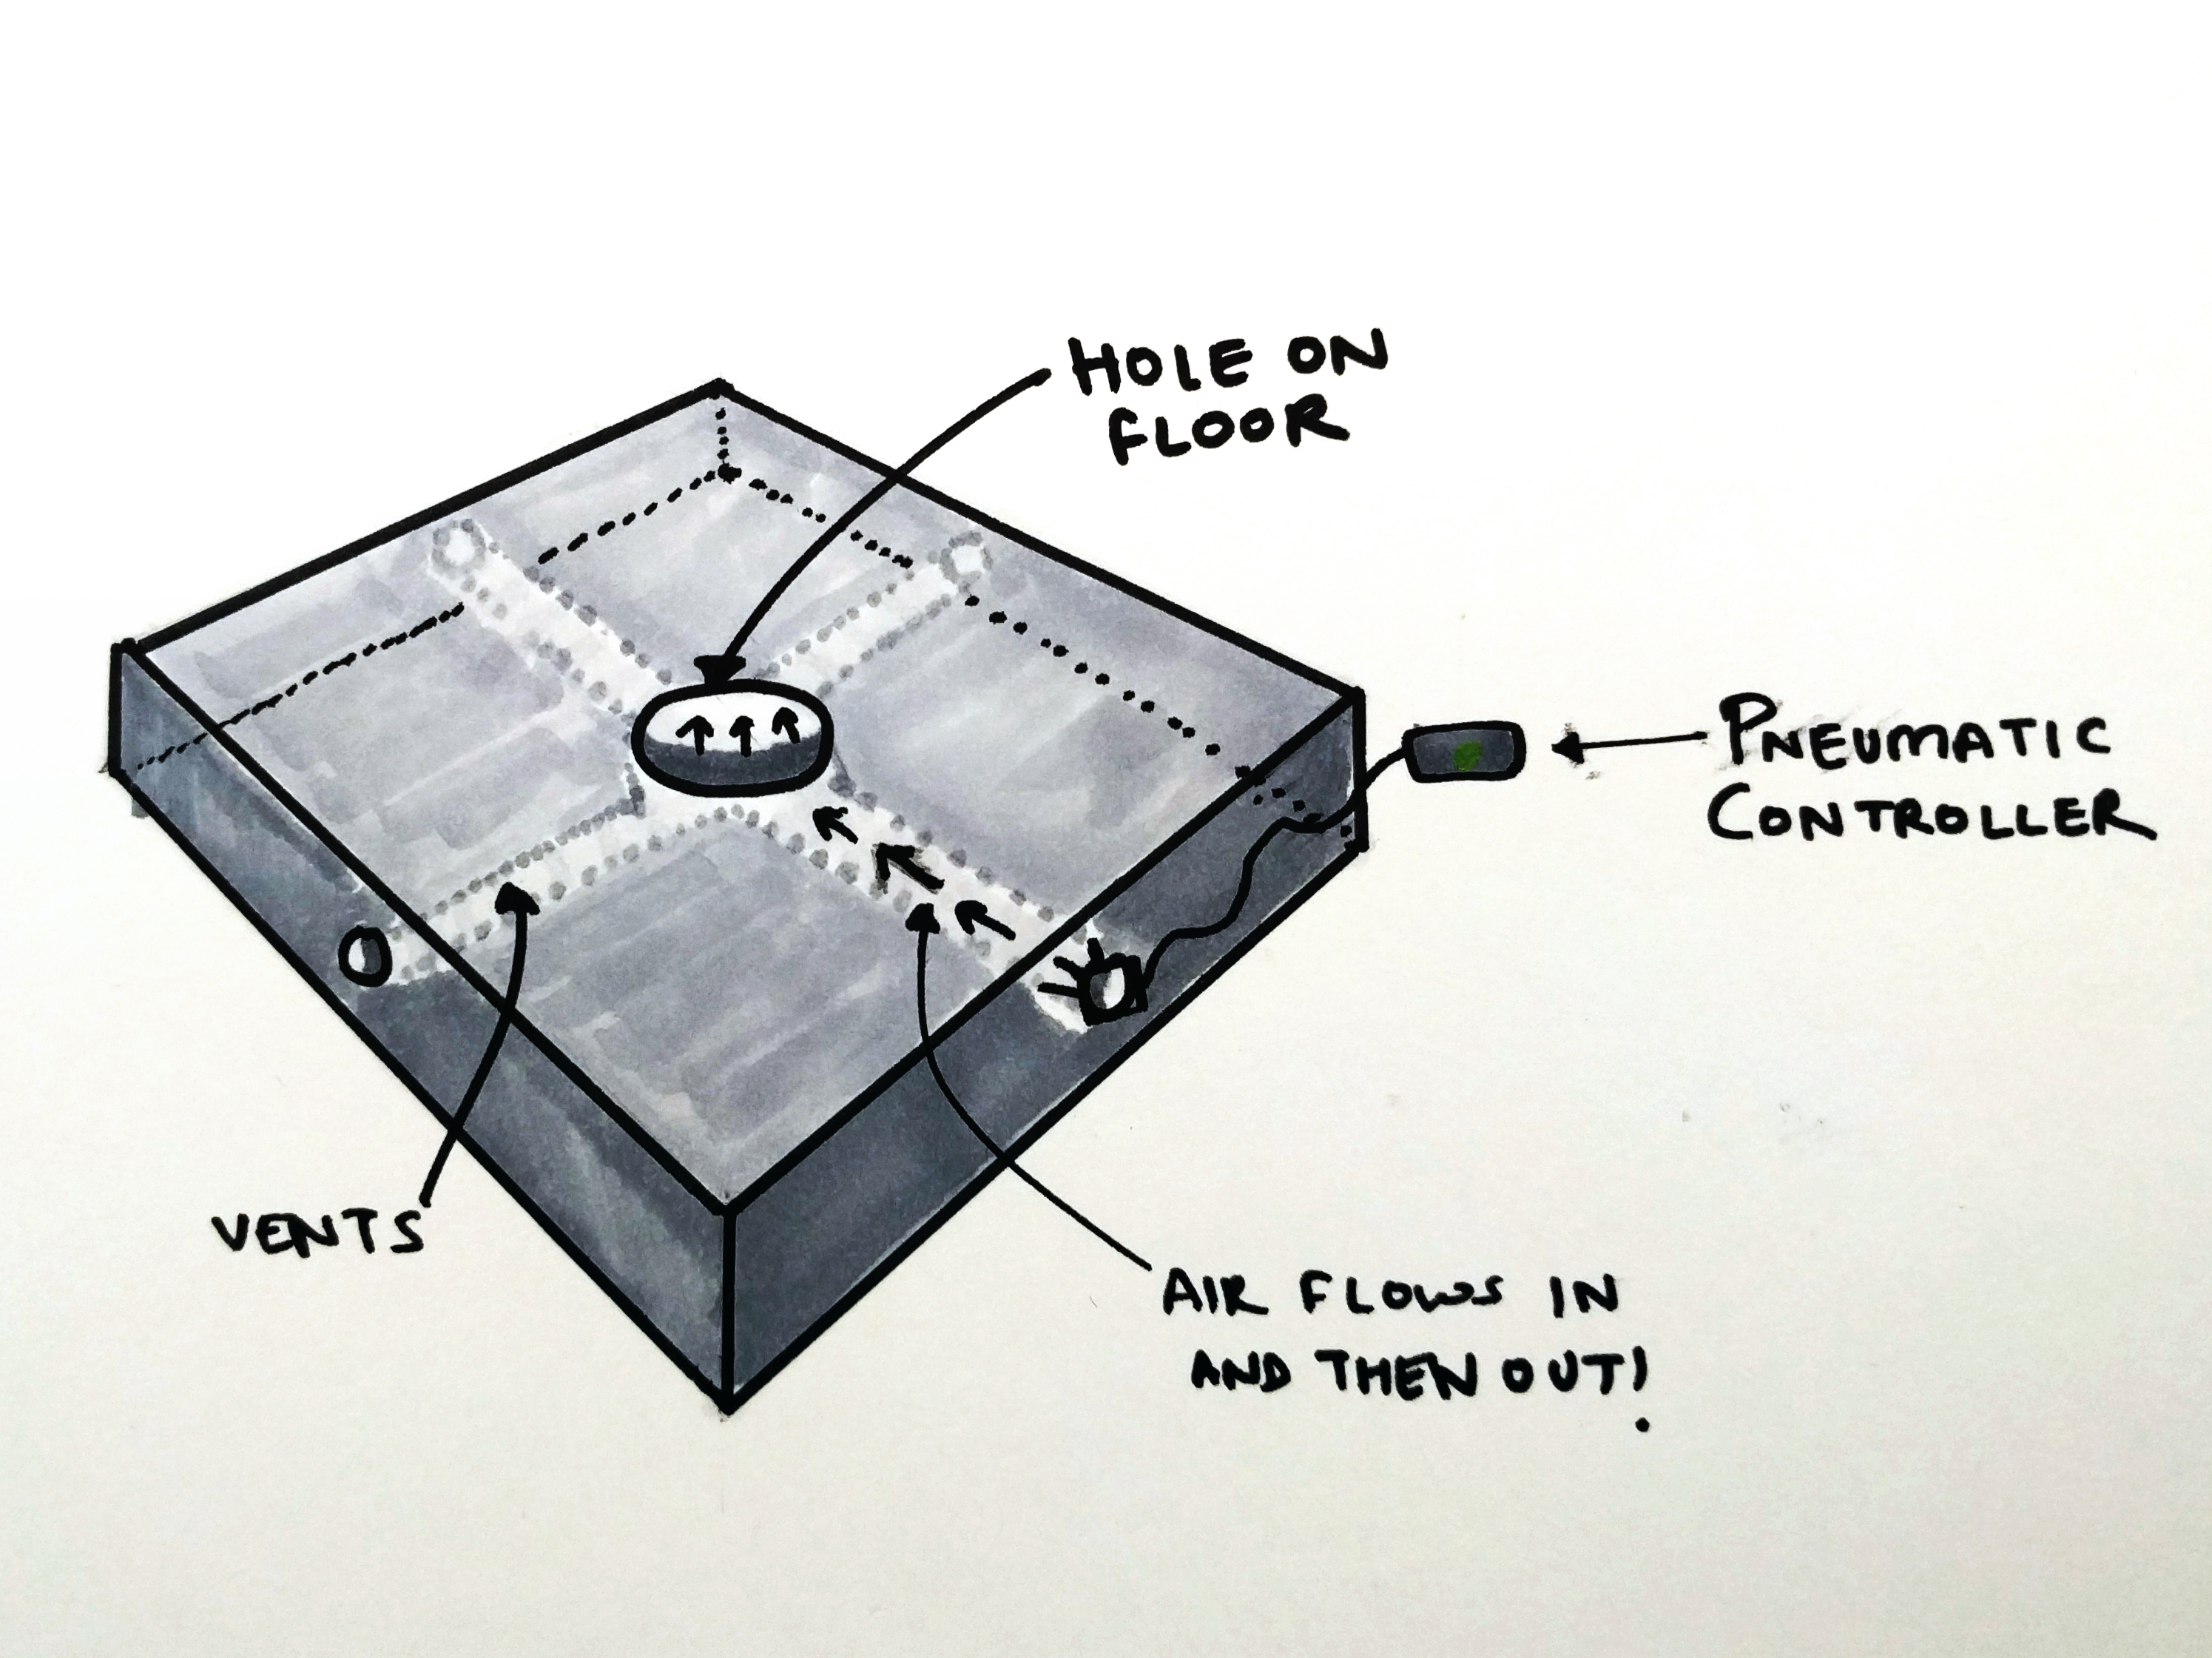 HOLE ON
FLOOR
PNEUMATIC
CONTROLLER
VENTS
AIR FLOWS IN
AND THEN OUT!